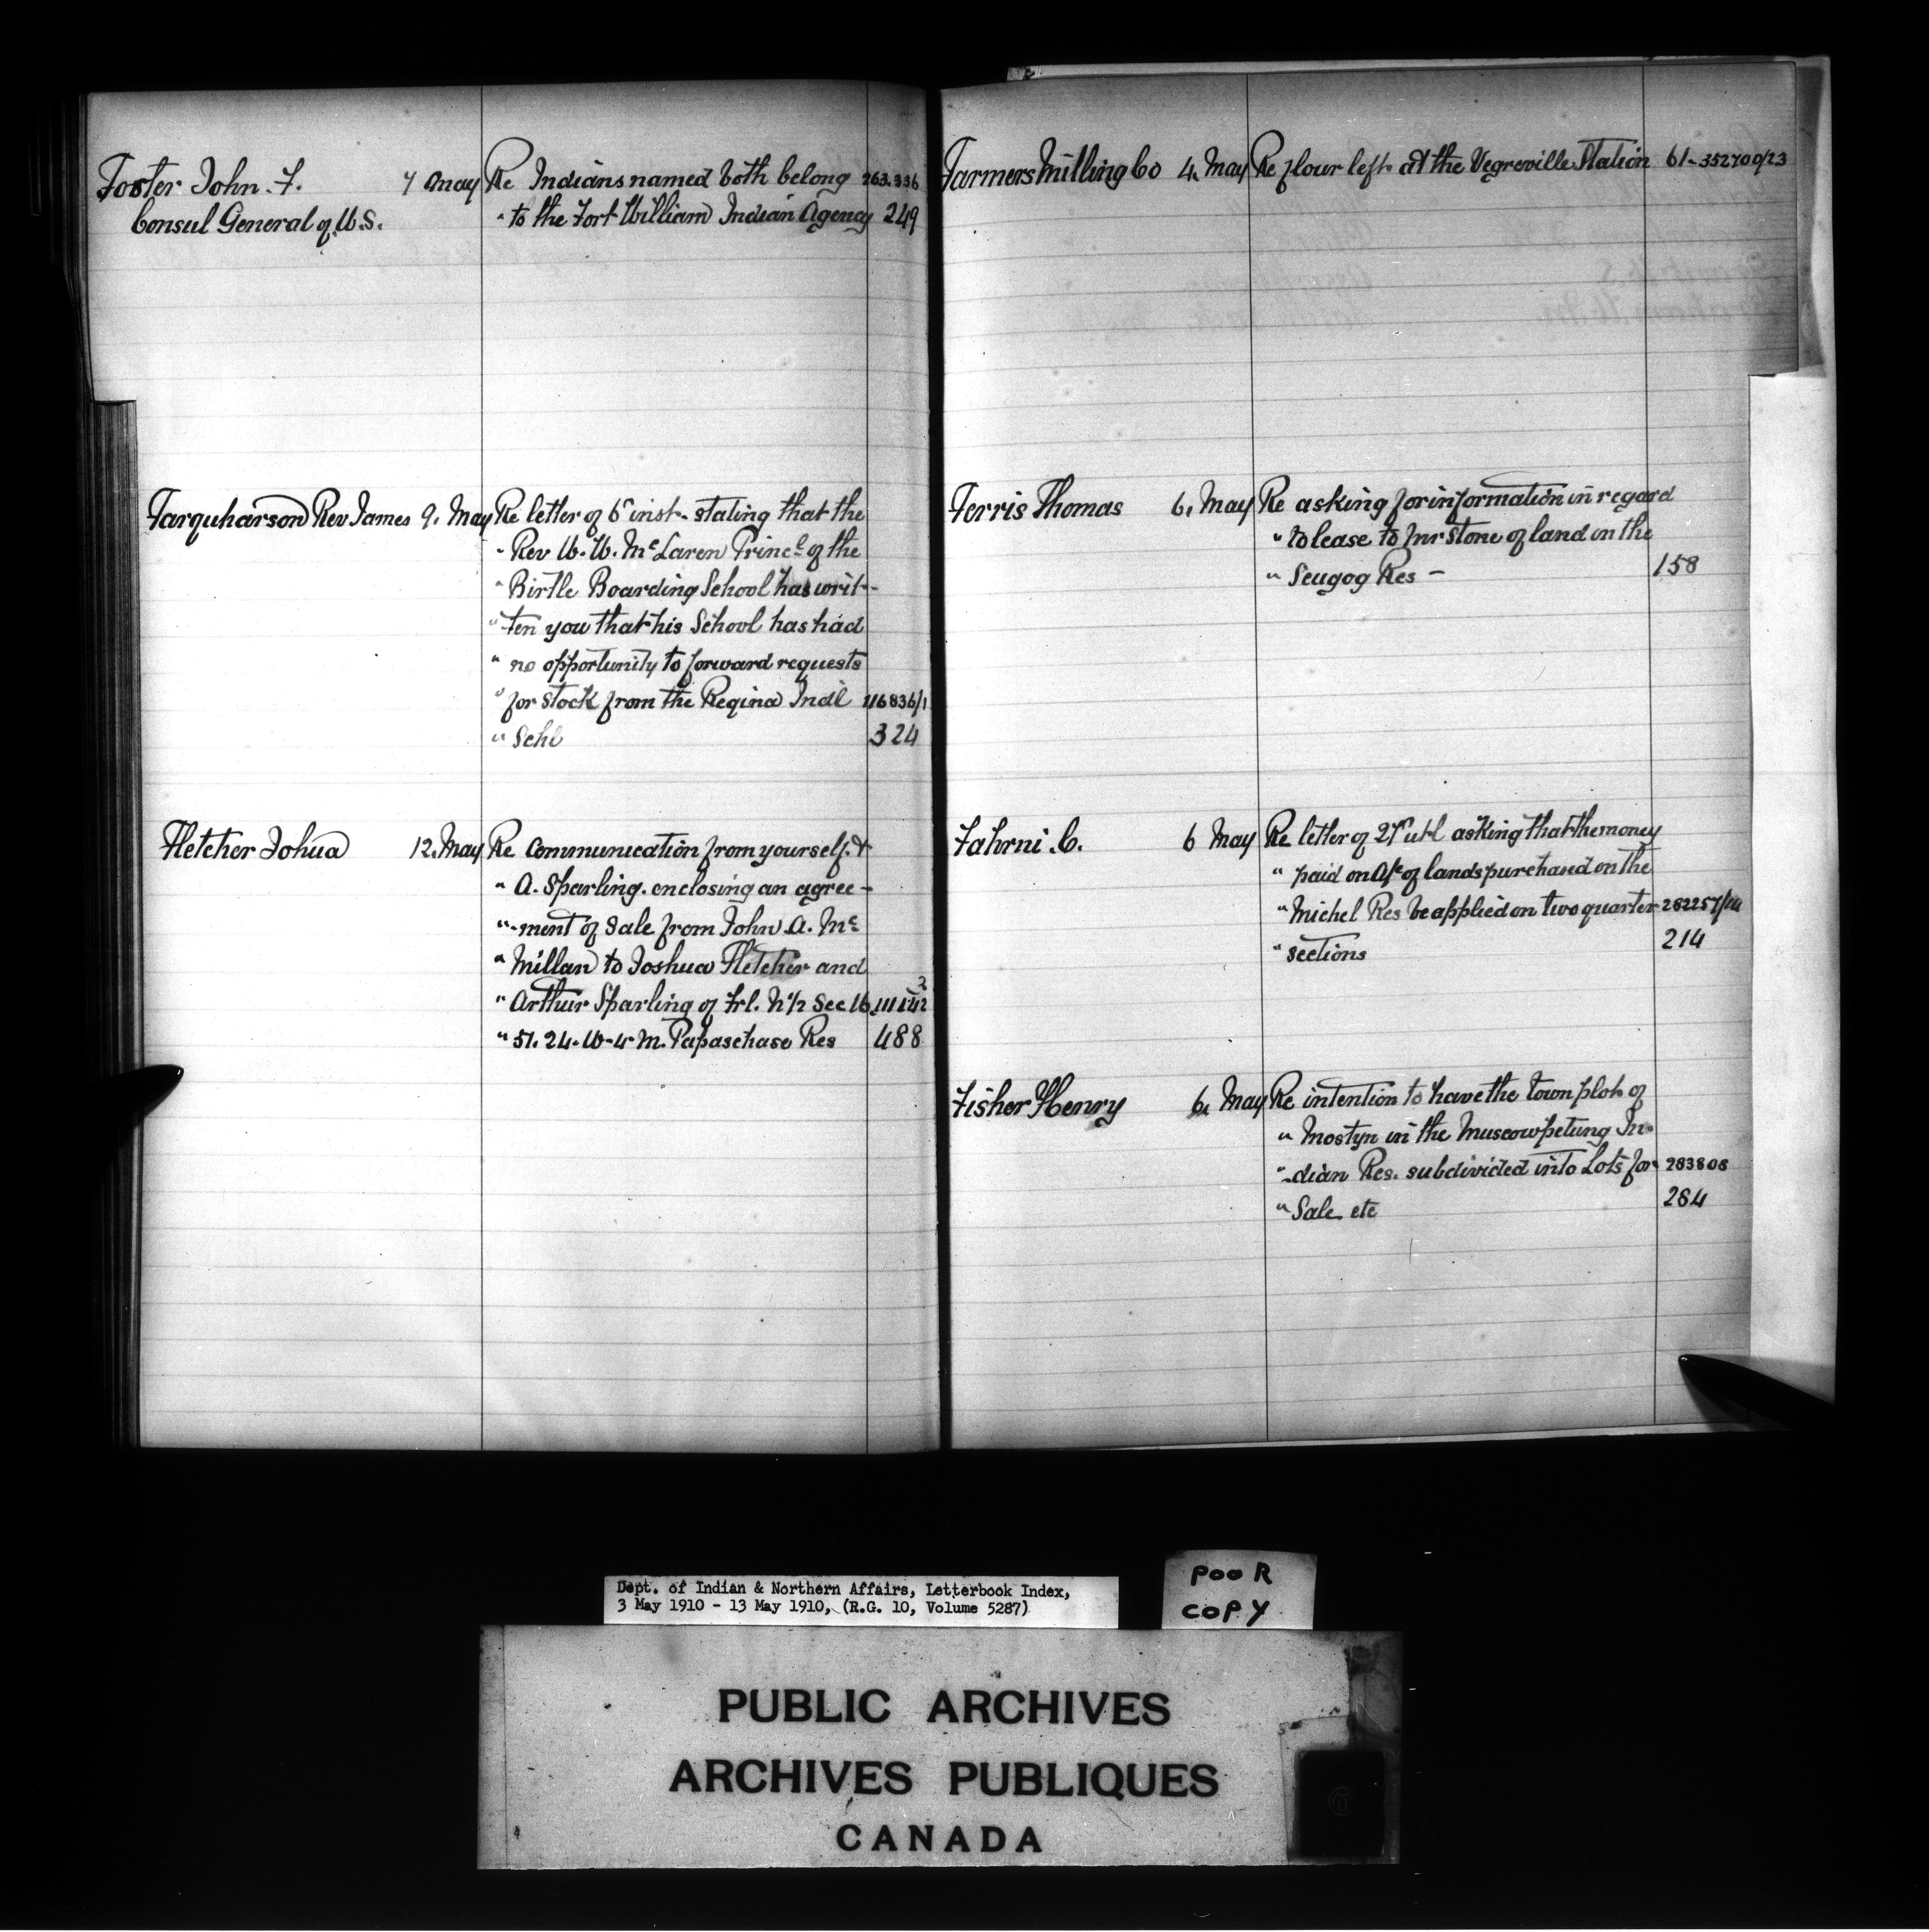 Foster John. F. 7 May Re Indians named both belong 263.336
Consul General of U.S. " to the Fort William Indian Agency 249
Farquharson Rev James 9. May Re letter of 6" inst. stating that the
" Rev W. W. McLaren Princl of the
" Birtle Boarding School has writ-
" ten you that his School has had
" no opportunity to forward requests
" for stock from the Regina Indl 116836/1
" Schl 324
Fletcher Johua 12. May Re Communication from yourself &
" A. Sparling. enclosing an agree-
" -ment of Sale from John A. Mc
" Millan to Joshua Fletcher and
" Arthur Sparling of Frl. N½ Sec 16
" 51. 24. W-4 M. Papaschase Res 488
Farmers Milling Co 4. May Re flour left at the Vegreville Station 61-352700/23
Ferris Thomas 6. May Re asking for information in regard
" to lease to Mr Stone of land in the
" Scugog Res - 158
Fahrni. C. 6 May Re letter of ult asking that the money
" paid on A/c of lands purchased on the
" Michel Res be applied on two quarter
" sections 214
Fisher Henry 6. May Re intention to have the town plot of
" Mostyn in the Muscowpetung In-
" -dian Res. subdivided into Lots for 283808
" Sale etc 284
Dept. of Indian & Northern Affairs, Letterbook Index,
3 May 1910 - 13 May 1910, (R.G. 10, Volume 5287)
POOR
COPY
PUBLIC ARCHIVES
ARCHIVES PUBLIQUES
CANADA